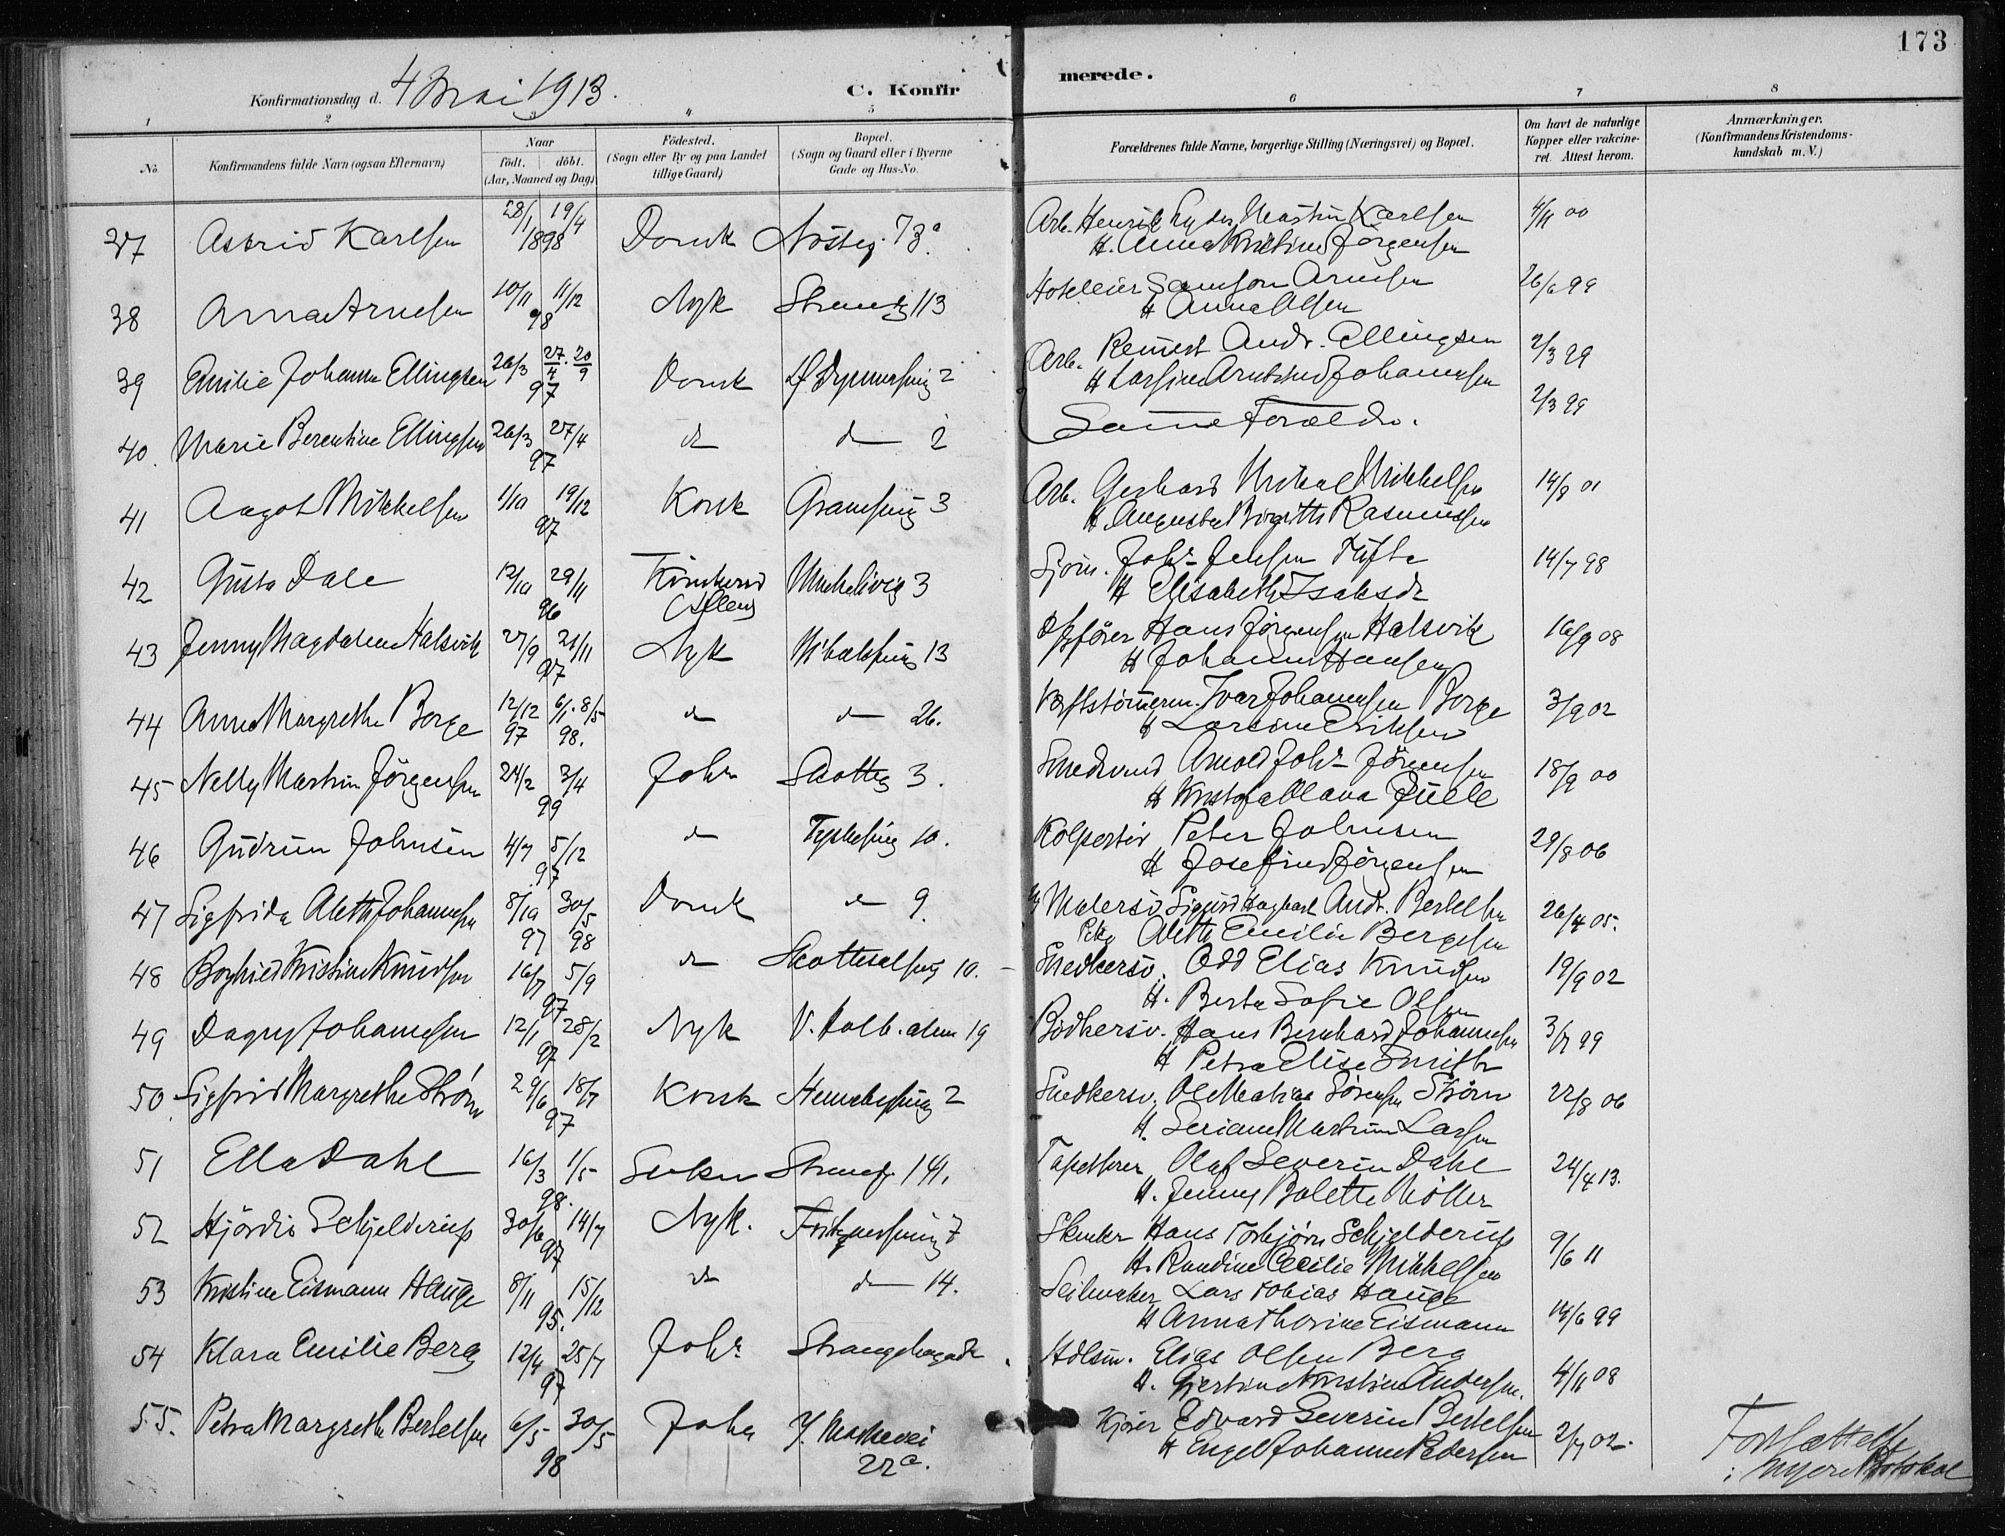 173
Konfirmationsdag d. 4 Mai 1913.
C. Konfirmerede.
1 2 3 4 5 6 7 8
No
Konfirmandens fulde Navn (ogsaa Efternavn)
Naar
födt. döbt.
(Aar, Maaned og Dag)
Födested.
(Sogn eller By og paa Landet
tillige Gaard)
Bopæl.
(Sogn og Gaard eller i Byerne
Gade og Hus-No.
Forældrenes fulde Navne, borgerlige Stilling (Næringsvei) og Bopæl.
Om havt de naturlige
Kopper eller vakcine-
ret. Attest herom.
Anmærkninger.
(Konfirmandens Kristendoms-
kundskab m.V.)
37 Astrid Karlsen 28/1 19/4 1898 Domk Nösteg. 73a Arb. Henrik Martin Karlsen 4/11 00
H. Anna Kristine Jörgensen
38 Anna Arnesen 10/11 11/12 98 Nyk Strandg 113 Hoteleier Samson Arnesen 26/6 99
H Anna Olsen
39 Emilie Johanne Ellingsen 26/3 27/4 . 20/9 97 Domk 2 Arb. Andr. Ellingsen 2/3 99
H Johannessen
40. Marie Berentine Ellingsen 26/3 27/4 97 d d 2 Samme Forældre. 2/3 99
41 Aagot Mikkelsen 1/10 19/12 97 Korsk 3 Arb. Gerhard Mikal Mikkelsen 14/8 01
H. Augusta Birgitte Rasmussen
42 Gusta Dale 12/10 29/11 96 3 Sjöm. Johs Jensen Tufte 14/7 98
H Elisabeth Isaksdr
43 Jenny Magdalene Halsvik 27/9 21/11 97 Nyk 13 Hans Jörgensen Halsvik 16/9 08
H Johanne Hansen
44 Anna Margrethe Borge 12/12 97 6/1. 8/5 98. d d 26. Ivar Johannesen Borge 3/9 02
H Larsine Eriksen
45 Nelly Martine Jörgensen 24/2 3/4 99 Johs Skotteg 3. Smedsvend Arnold Johs Jörgensen 18/9 00
H Kristofa Olava
46 Gudrun Johnsen 4/7 5/12 97 d 10. Kolportör Peter Johnsen 29/8 06
H Josefine Jörgensen
47 Sigfrida Alette Johannesen 8/10 97 30/5 98 Domk d 9. Malersv. Sigurd Hagbart Andr. Bertelsen 26/4 05.
Pike Alette Emilie Bergesen
48 Borghild Kristine Knudsen 16/7 5/9 97 d 10. Snedkersv. Odd Elias Knudsen 19/9 02
H. Berta Sofie Olsen
49 Dagny Johannesen 12/1 28/2 97 Nyk 19 Bödkersv. Hans Bernhard Johannesen 3/7 99
H Petra Elise Smith
50. Sigfrid Margrethe Ström 29/6 18/7 97 Korsk 2 Snedkersv. Ole Mathias Sörensen Ström 22/8 06
H. Martine Larsen
51 Ella Dahl 16/3 1/5 98. Strandg. 141. Tapetserer Olaf Severin Dahl 24/4 13.
H. Jenny Bolette Möller
52 Hjördis Schjelderup 30/6 14/7 97 Nyk. 7 Hans Torbjörn Schjelderup 9/6 11
H. Randine Cecilie Mikkelsen
53 Kristine Eismann Hauge 8/11 15/12 95. d d 14. Seilmaker Lars Tobias Hauge 14/6 99
H Anna Thorine Eismann
54 Klara Emilie Berg 12/4 25/7 97 Johs Strangehagade Elias Olsen Berg 4/11 08
H. Gjertine Kristine Andersen.
55. Petra Margrethe Bertelsen 6/5 30/5 98 Johs 22a. Kjörer Edvard Severin Bertelsen 2/7 02.
H Engel Johanne Pedersen
Fortsættelse
i nyere Protokol